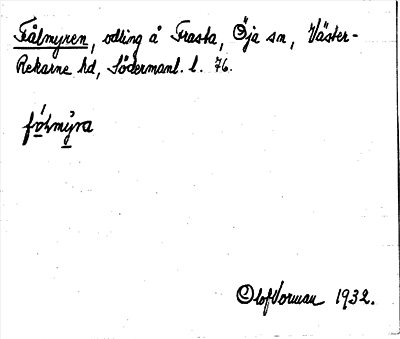 Frålmyren, odling å Frasta, Öja sn, Väster-
Rekarne hd, Södermanl. l. 76.
Olof Vorman 1932.